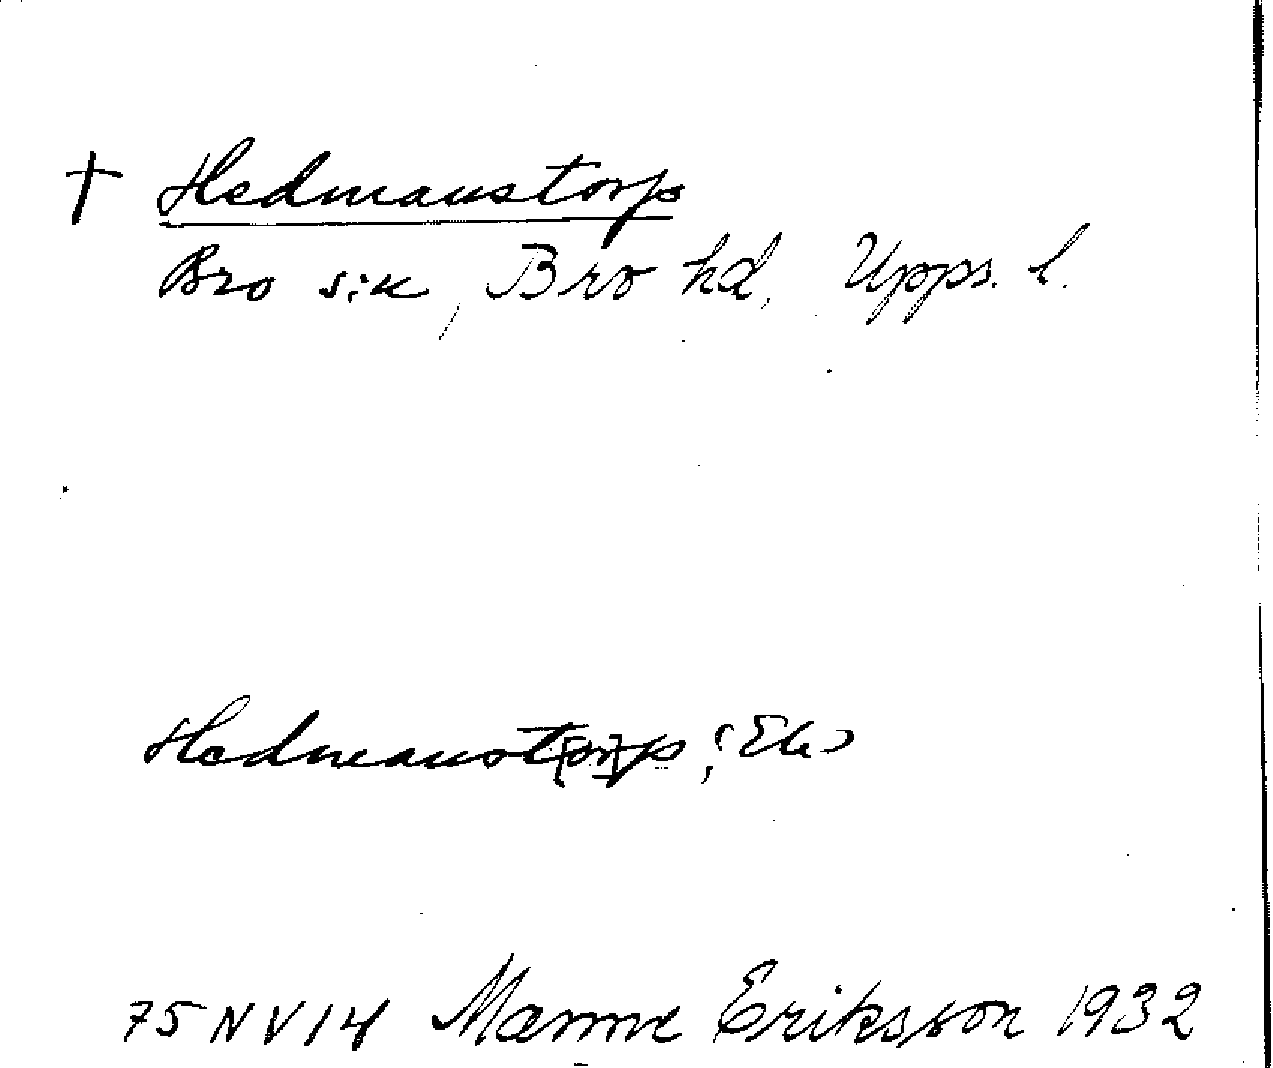 † Hedmanstorp
Bro s:n, Bro hd, Upps. l.
Hedmanst[or]p
75 NV 14 Manne Eriksson 1932